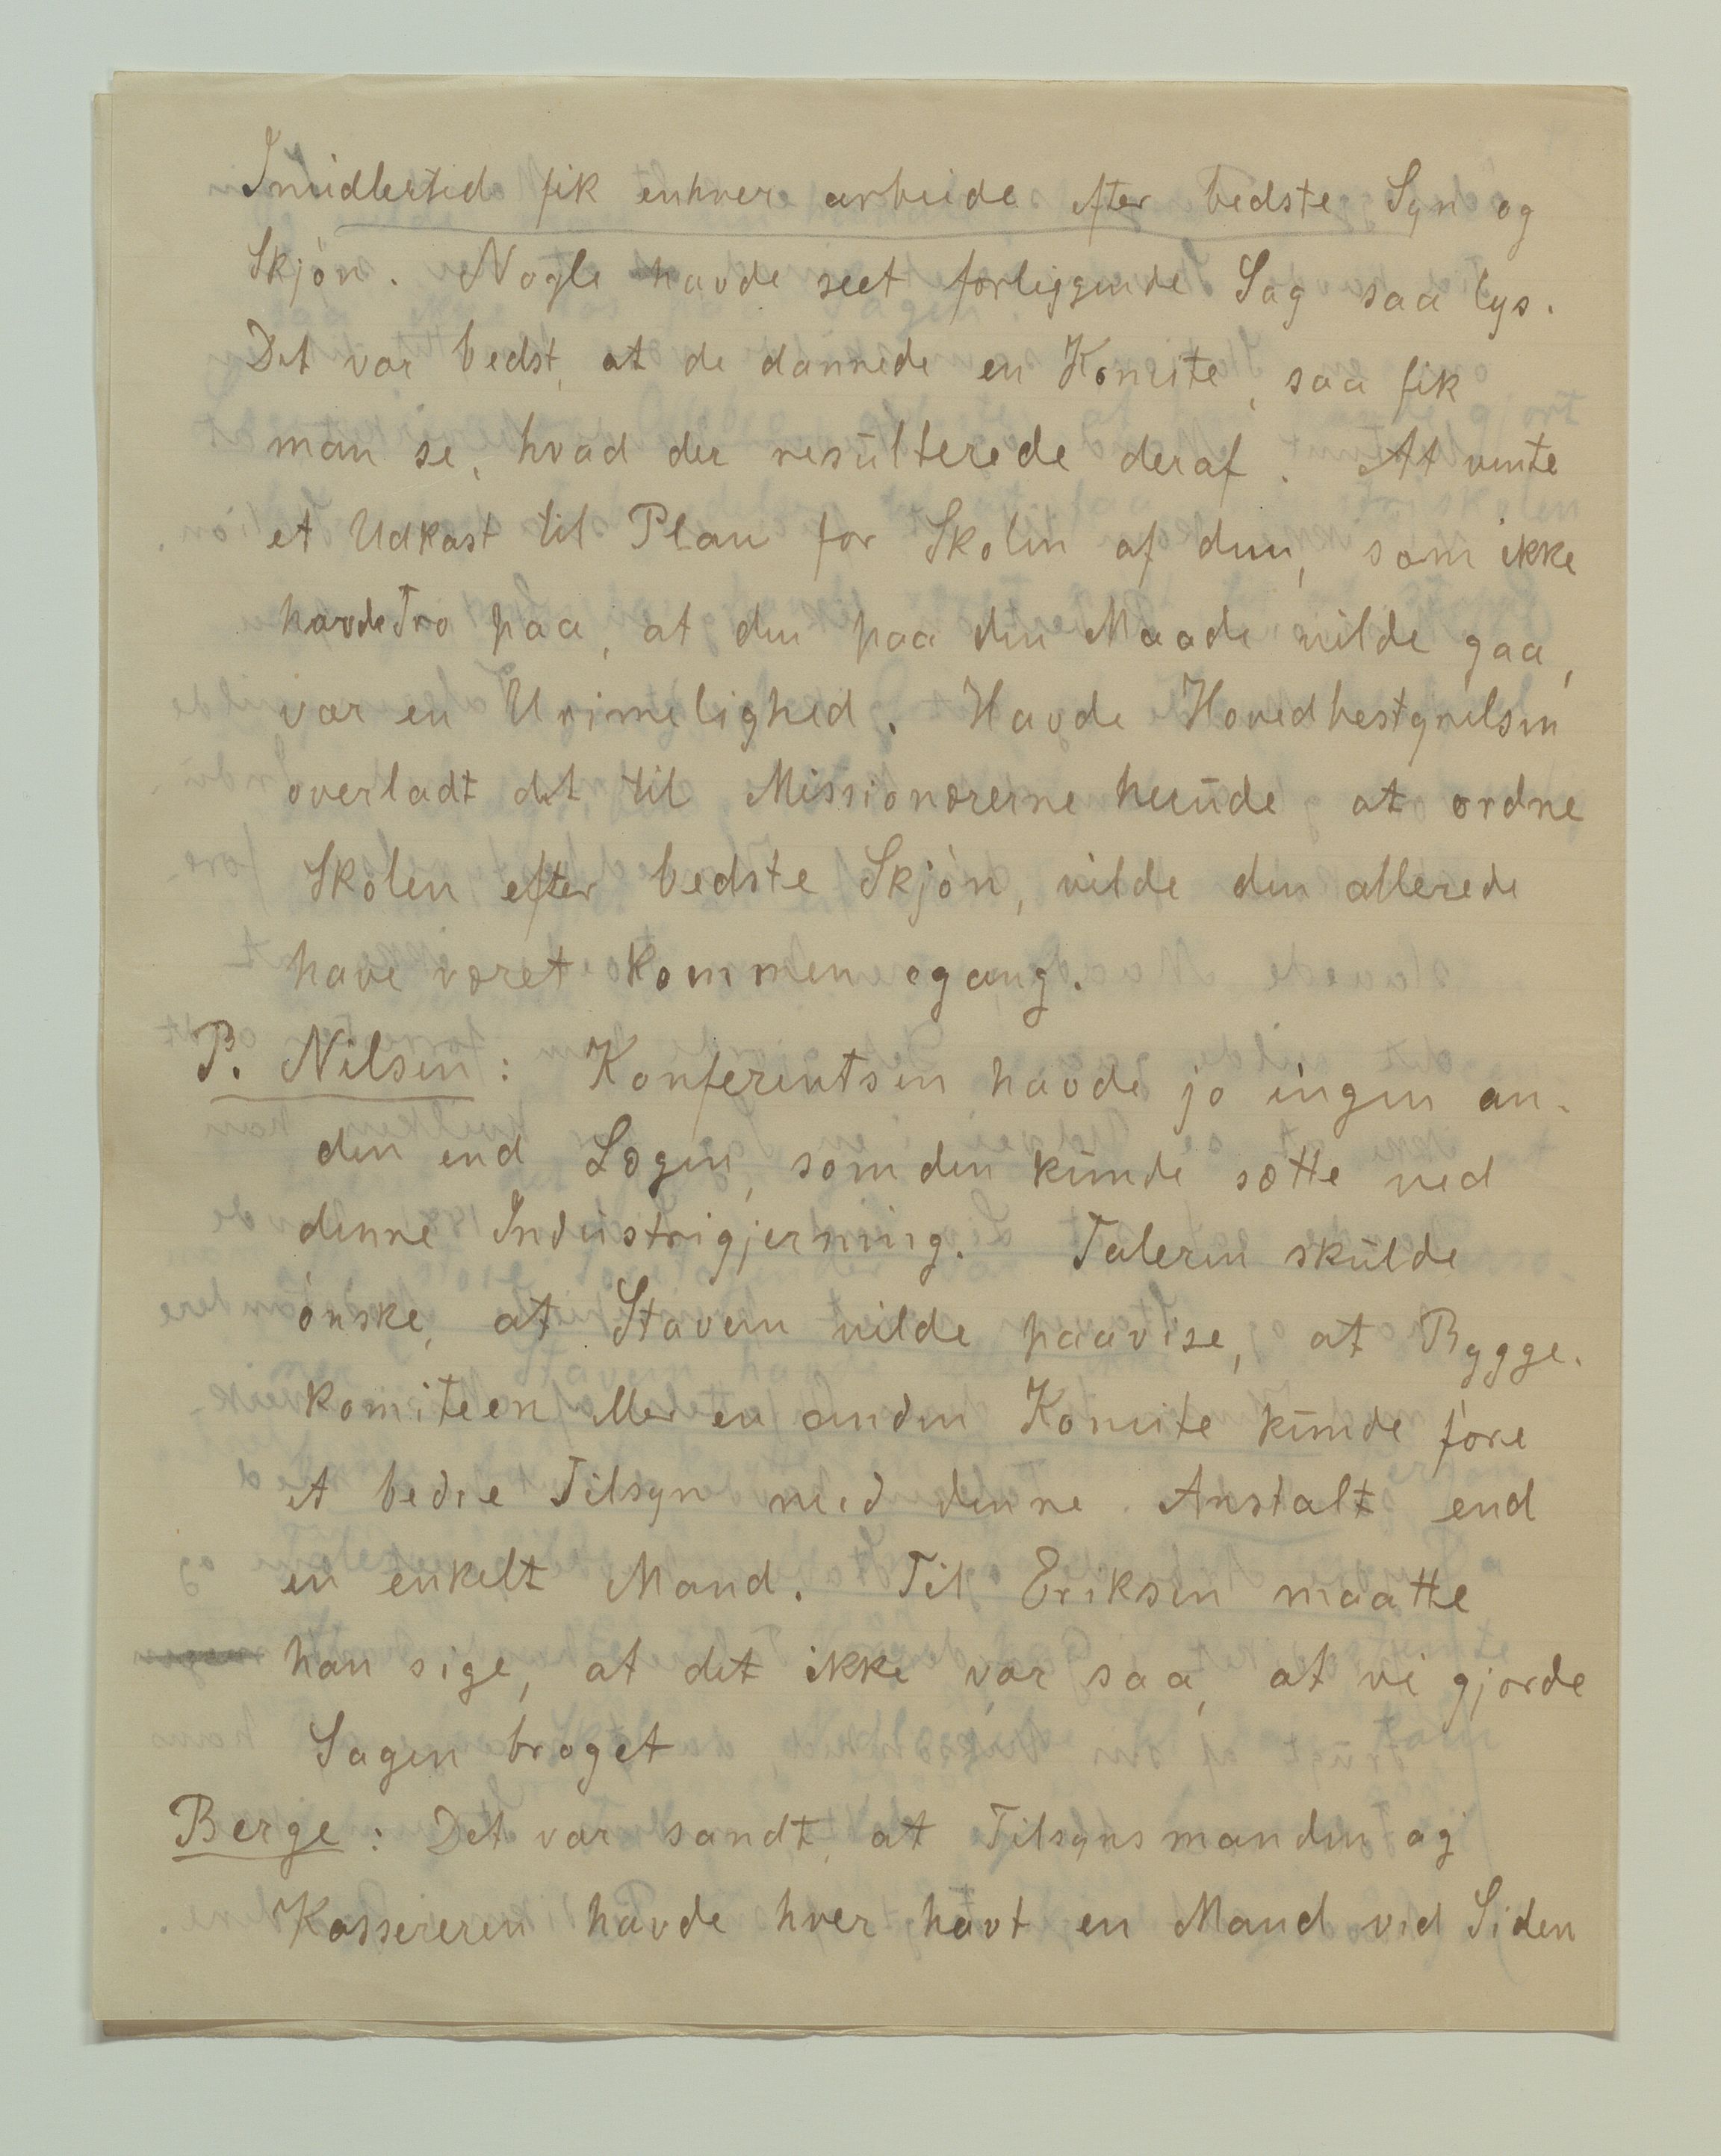 Imidlertid fik enhver arbeide efter bedste Syn og
Skjön. Nogle havde seet forliggende Sag saa lys.
Det var bedst, at de dannede en Komite, saa fik
man se, hvad der resulterede deraf. At vente
et Udkast til Plan for Skolen af dem, som ikke
havde Tro paa, at den paa den Maade vilde gaa,
var en Urimelighed. Havde Hovedbestyrelsen
overladt det til Missionærerne herude at ordne
Skolen efter bedste Skjön, vilde den allerede
have været kommen igang.
P. Nilsen: Konferentsen havde jo ingen an-
den end Lægen, som den kunde sætte ved
denne Industrigjerning. Taleren skulde
önske, at Stavem vilde paavise, at Bygge-
komiteen eller en anden Komite kunde före
et bedre Tilsyn med denne Anstalt end
en enkelt Mand. Til Eriksen maatte
han sige, at det ikke var saa, at vi gjorde
Sagen broget
Berge: Det var sandt, at Tilsynsmanden og
Kassereren havde hver havt en Mand ved Siden